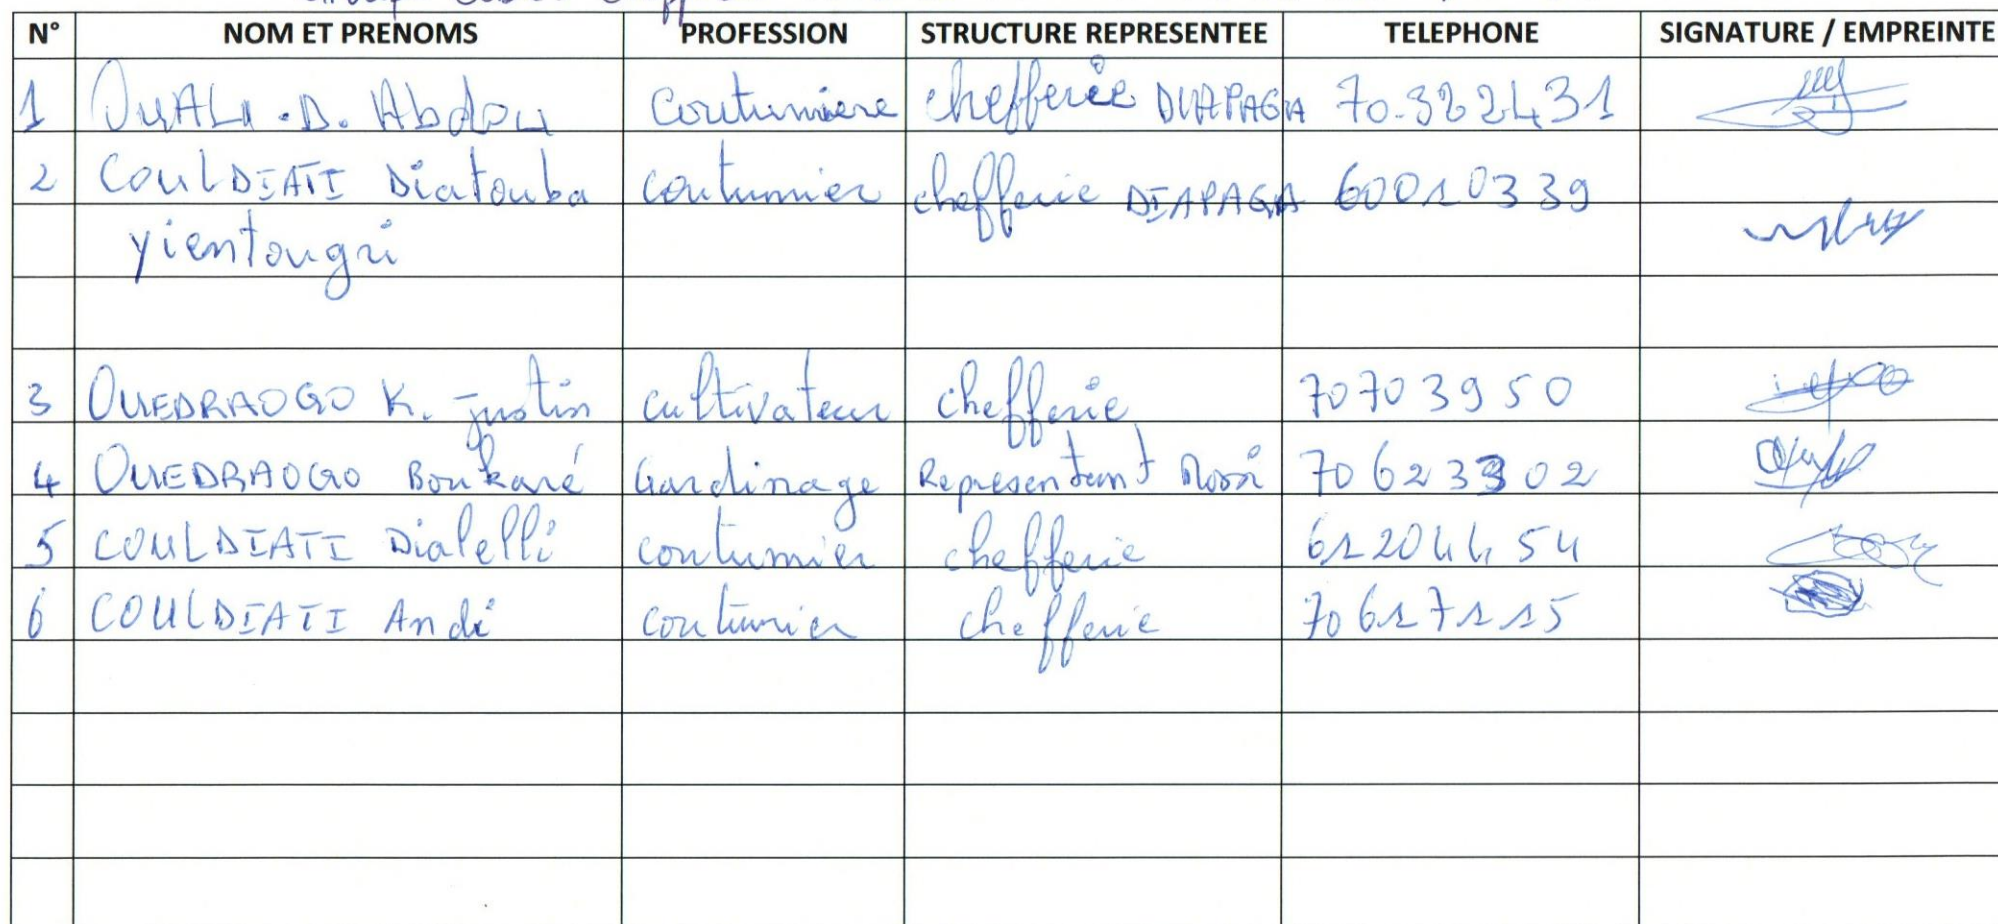 N° NOM ET PRENOMS PROFESSION STRUCTURE REPRESENTEE TELEPHONE SIGNATURE / EMPREINTE
1 OUALI .D. Abdou Coutumiere chefferie DIAPAGA 70.322431
2 COULDIATI Diatouba coutumier chefferie DIAPAGA 60010339
yientougri
3 OUEDRAOGO K. justin cultivateur chefferie 70703950
4 OUEDRAOGO Boukaré Gardinage Representant Mossi 70623302
5 COULDIATI Dialelli coutumier chefferie 61204454
6 COULDIATI Andi coutumier chefferie 70617115